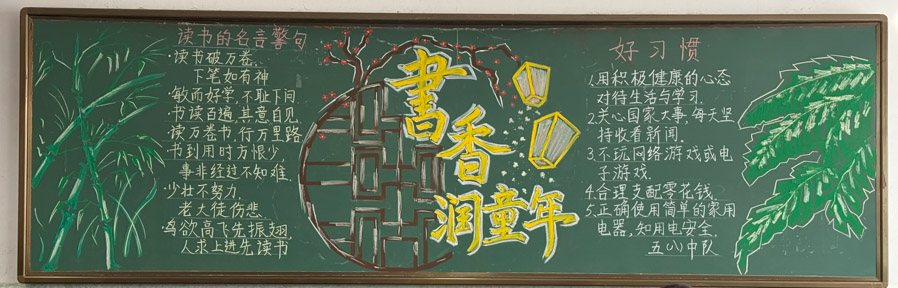 读书的名言警句
·读书破万卷,
下笔如有神
·敏而好学,不耻下问
·书读百遍,其意自见
·读万卷书,行万里路
·书到用时方恨少,
事非经过不知难.
·少壮不努力,
老大徒伤悲.
·鸟欲高飞先振翅,
人求上进先读书
書香
润童年
好习惯
1.用积极健康的心态
对待生活与学习.
2.关心国家大事,每天坚
持收看新闻.
3.不玩网络游戏或电
子游戏.
4.合理支配零花钱.
5.正确使用简单的家用
电器,知用电安全.
五(八)中队